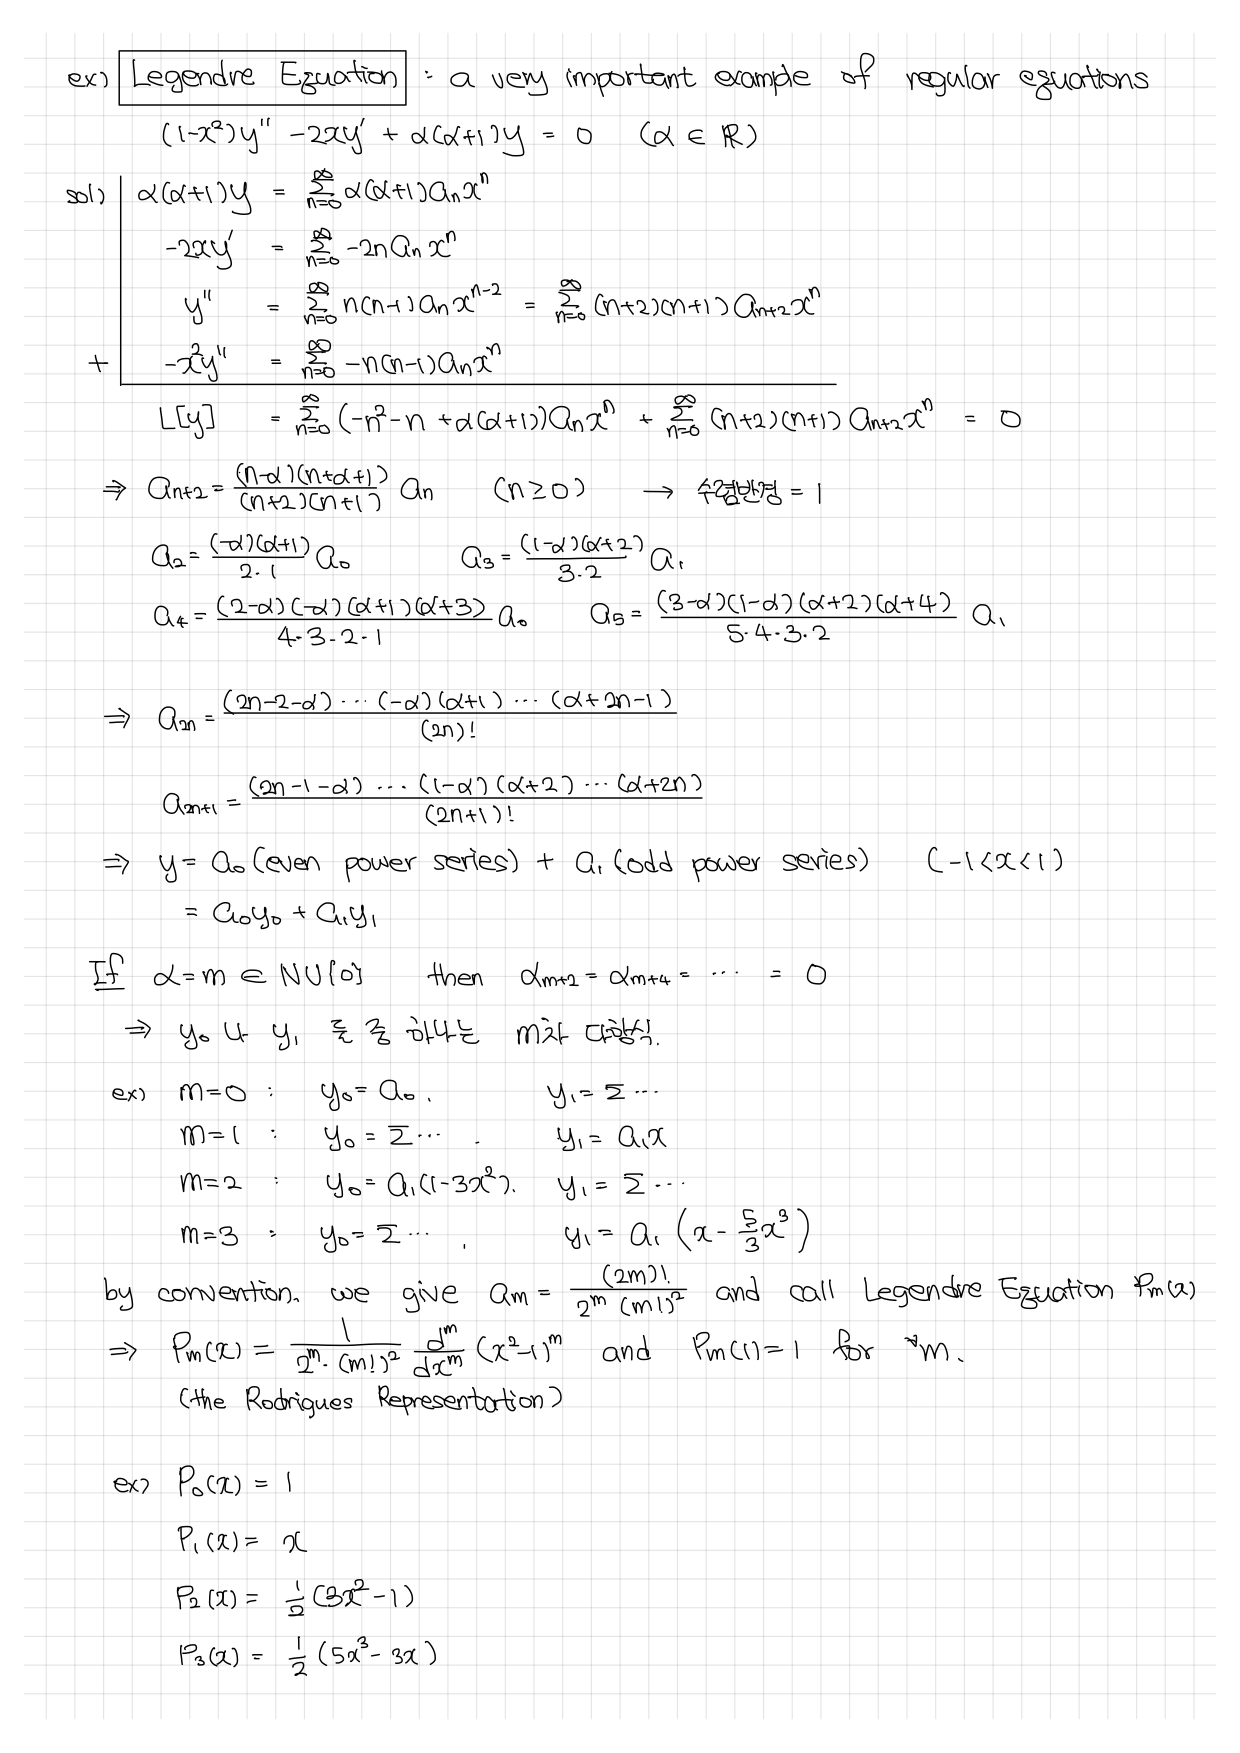 ex) Legendre Equation : a very important example of regular equations
(1-x²)y'' -2xy' + α(α+1)y = 0 (α ∈ ℝ)
sol) α(α+1)y = ∑_{n=0}^{∞} α(α+1)a_n x^n
-2xy' = ∑_{n=0}^{∞} -2n a_n x^n
y'' = ∑_{n=0}^{∞} n(n-1)a_n x^{n-2} = ∑_{n=0}^{∞} (n+2)(n+1)a_{n+2}x^n
+ -x²y'' = ∑_{n=0}^{∞} -n(n-1)a_n x^n
L[y] = ∑_{n=0}^{∞} (-n²-n+α(α+1))a_n x^n + ∑_{n=0}^{∞} (n+2)(n+1)a_{n+2}x^n = 0
⇒ a_{n+2} = \frac{(n-α)(n+α+1)}{(n+2)(n+1)} a_n (n≥0) → 수렴반경 = 1
a_2 = \frac{(-α)(α+1)}{2·1} a_0 a_3 = \frac{(1-α)(α+2)}{3·2} a_1
a_4 = \frac{(2-α)(-α)(α+1)(α+3)}{4·3·2·1} a_0 a_5 = \frac{(3-α)(1-α)(α+2)(α+4)}{5·4·3·2} a_1
⇒ a_{2n} = \frac{(2n-2-α)···(-α)(α+1)···(α+2n-1)}{(2n)!}
a_{2n+1} = \frac{(2n-1-α)···(1-α)(α+2)···(α+2n)}{(2n+1)!}
⇒ y = a_0 (even power series) + a_1 (odd power series) (-1<x<1)
= a_0y_0 + a_1y_1
If α=m ∈ N∪{0} then α_{m+2} = α_{m+4} = ··· = 0
⇒ y_0 나 y_1 둘 중 하나는 m차 다항식.
ex) m=0 : y_0 = a_0. y_1 = Σ···
m=1 : y_0 = Σ··· . y_1 = a_1x
m=2 : y_0 = a_1(1-3x²). y_1 = Σ···
m=3 : y_0 = Σ··· , y_1 = a_1 (x - \frac{5}{3}x³)
by convention. we give a_m = \frac{(2m)!}{2^m (m!)²} and call Legendre Equation P_m(x)
⇒ P_m(x) = \frac{1}{2^m·(m!)²} \frac{d^m}{dx^m} (x²-1)^m and P_m(1)=1 for ∀m.
(the Rodrigues Representation)
ex) P_0(x) = 1
P_1(x) = x
P_2(x) = \frac{1}{2}(3x²-1)
P_3(x) = \frac{1}{2}(5x³-3x)